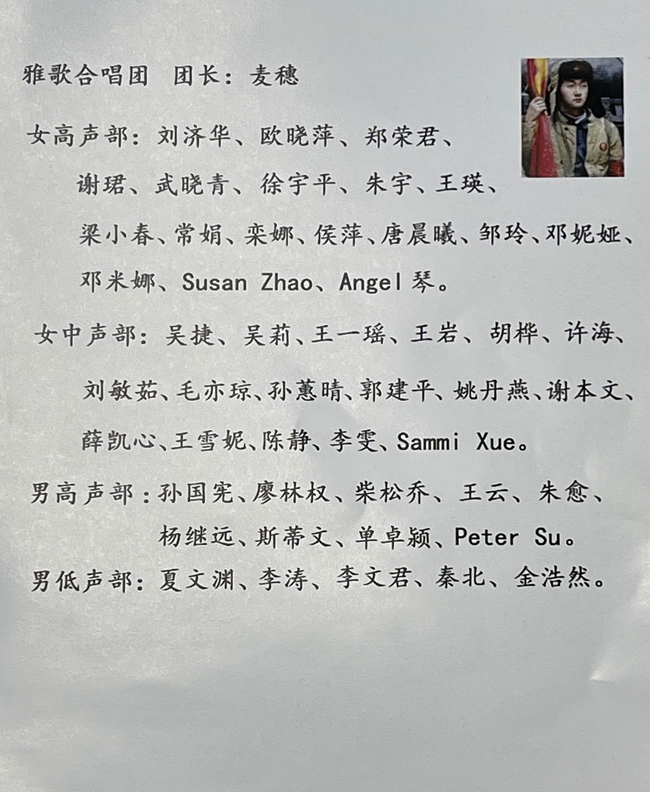 雅歌合唱团 团长：麦穗
女高声部：刘济华、欧晓萍、郑荣君、
谢珺、武晓青、徐宇平、朱宇、王瑛、
梁小春、常娟、栾娜、侯萍、唐晨曦、邹玲、邓妮娅、
邓米娜、Susan Zhao、Angel琴。
女中声部：吴捷、吴莉、王一瑶、王岩、胡桦、许海、
刘敏茹、毛亦琼、孙蕙晴、郭建平、姚丹燕、谢本文、
薛凯心、王雪妮、陈静、李雯、Sammi Xue。
男高声部：孙国宪、廖林权、柴松乔、王云、朱愈、
杨继远、斯蒂文、单卓颖、Peter Su。
男低声部：夏文渊、李涛、李文君、秦北、金浩然。